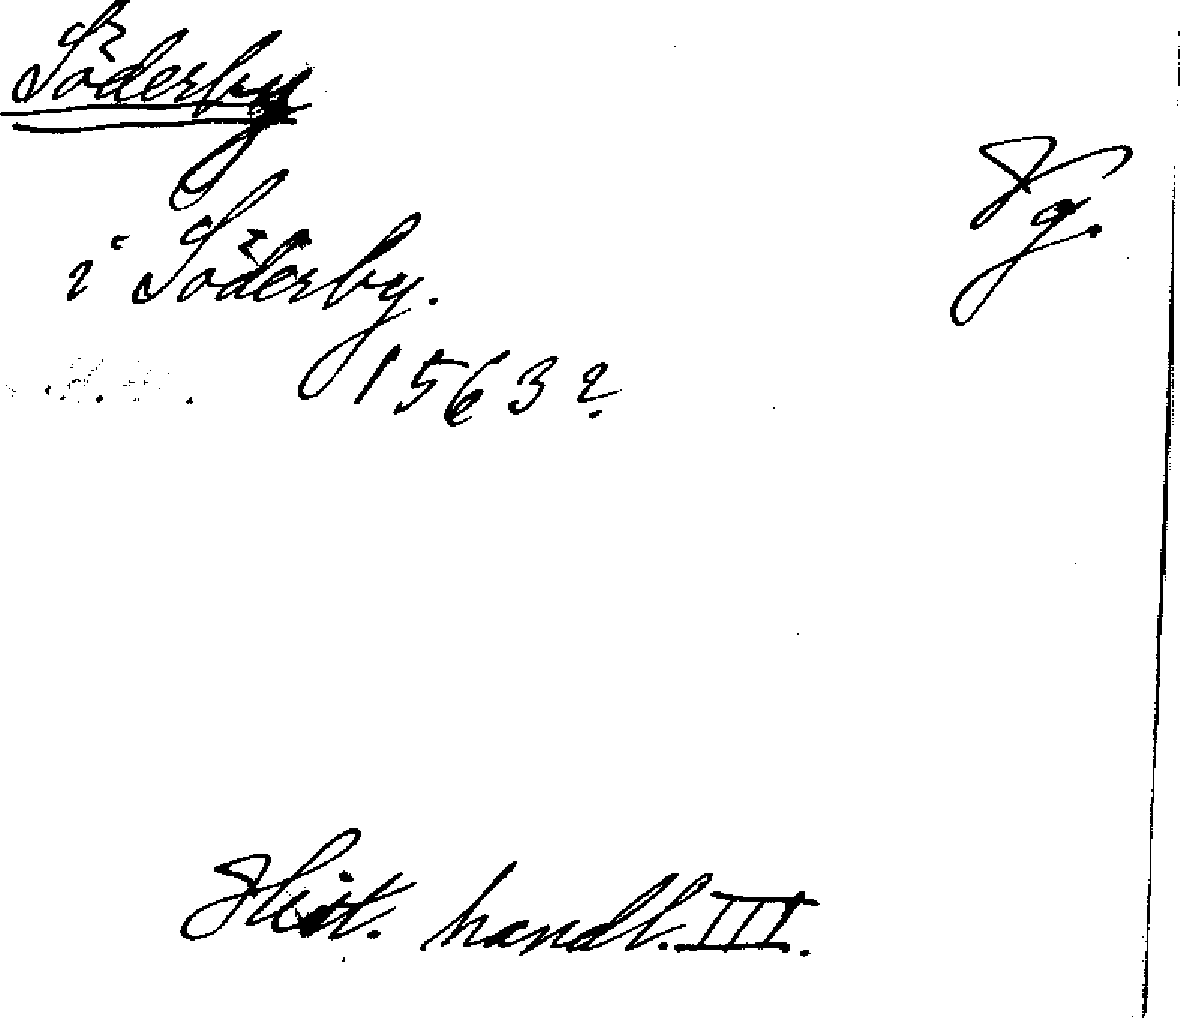 Söderby
Vg.
i Söderby.
1563?
Hist. handl. III.